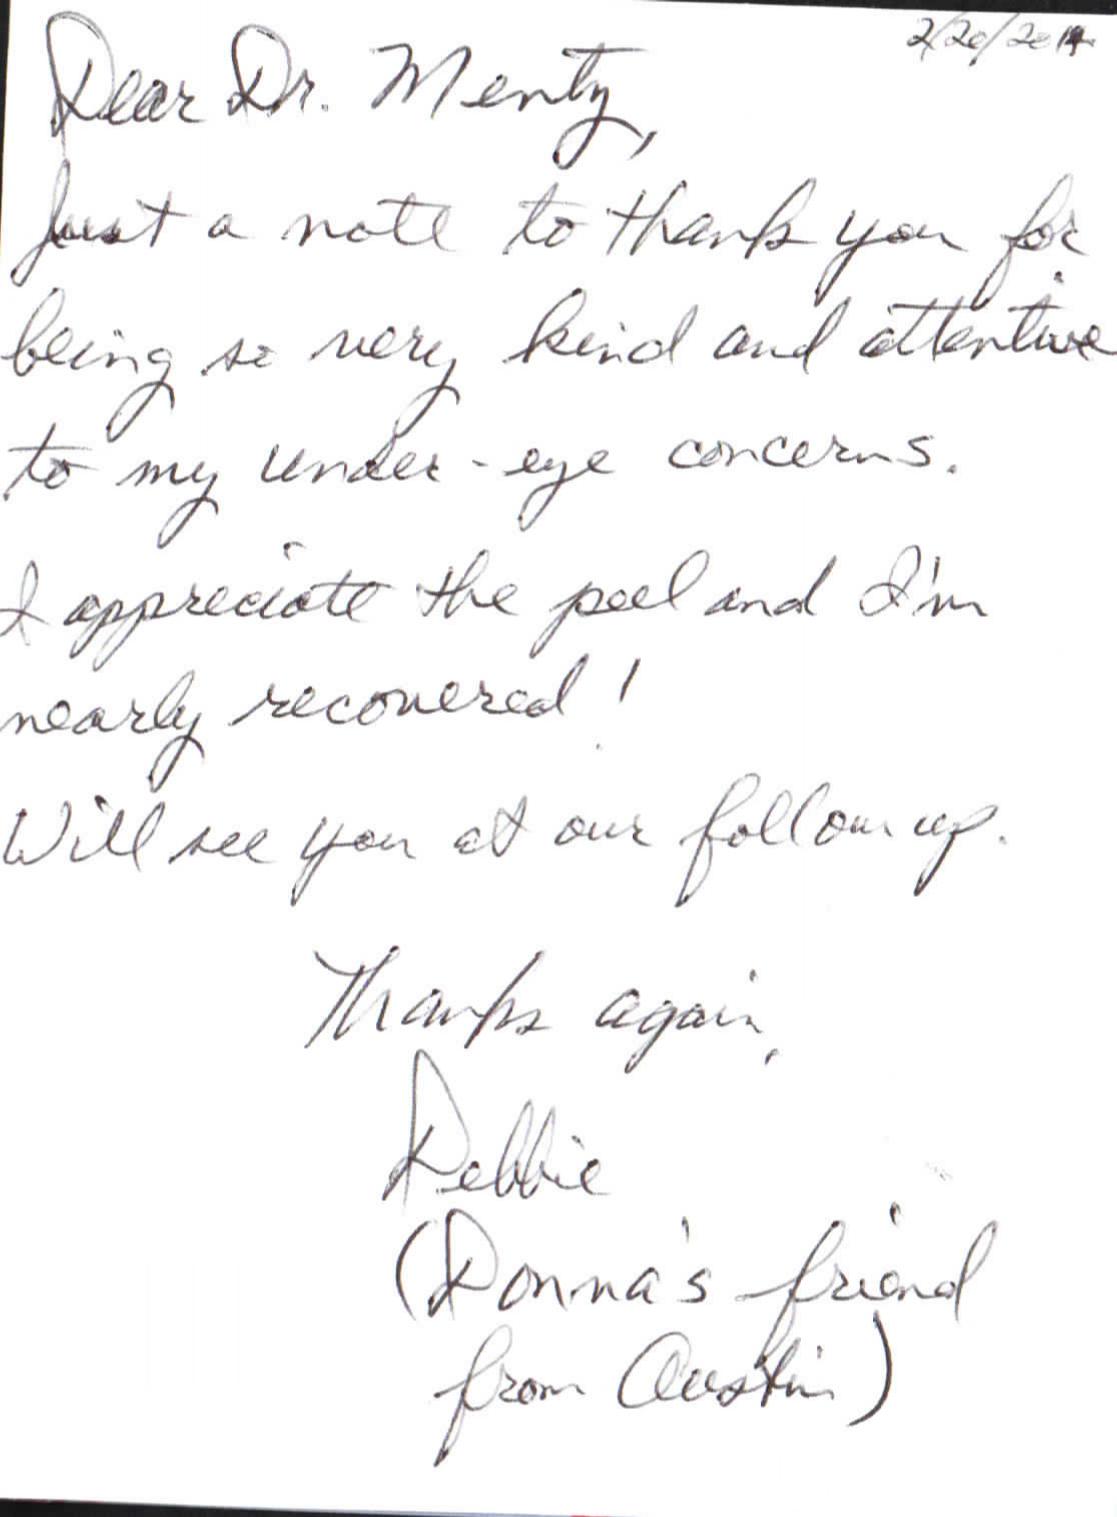 2/20/2014
Dear Dr. Menty,
Just a note to thank you for
being so very kind and attentive
to my under-eye concerns.
I appreciate the peel and I'm
nearly recovered!
Will see you at our follow up.
Thanks again,
Debbie
(Donna's friend
from Austin)